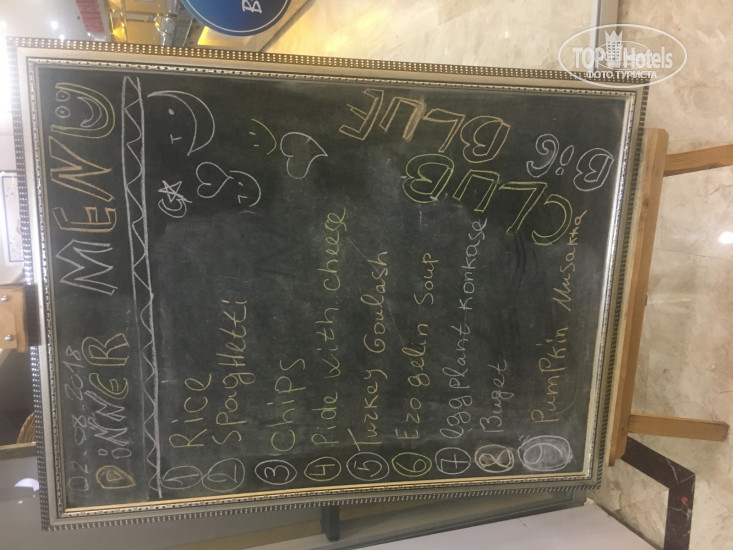 02.08.2018
DiNNER MENU
1 Rice
2 SpagHetti
3 CHips
4 Pide with cheese
5 Turkey Goulash
6 Ezogelin Soup
7 eggplant Konkase
8 Buget
9 PumPkin Musakka
BiG
BLUE
CLUB
TOP Hotels
ФОТО ТУРИСТА
B